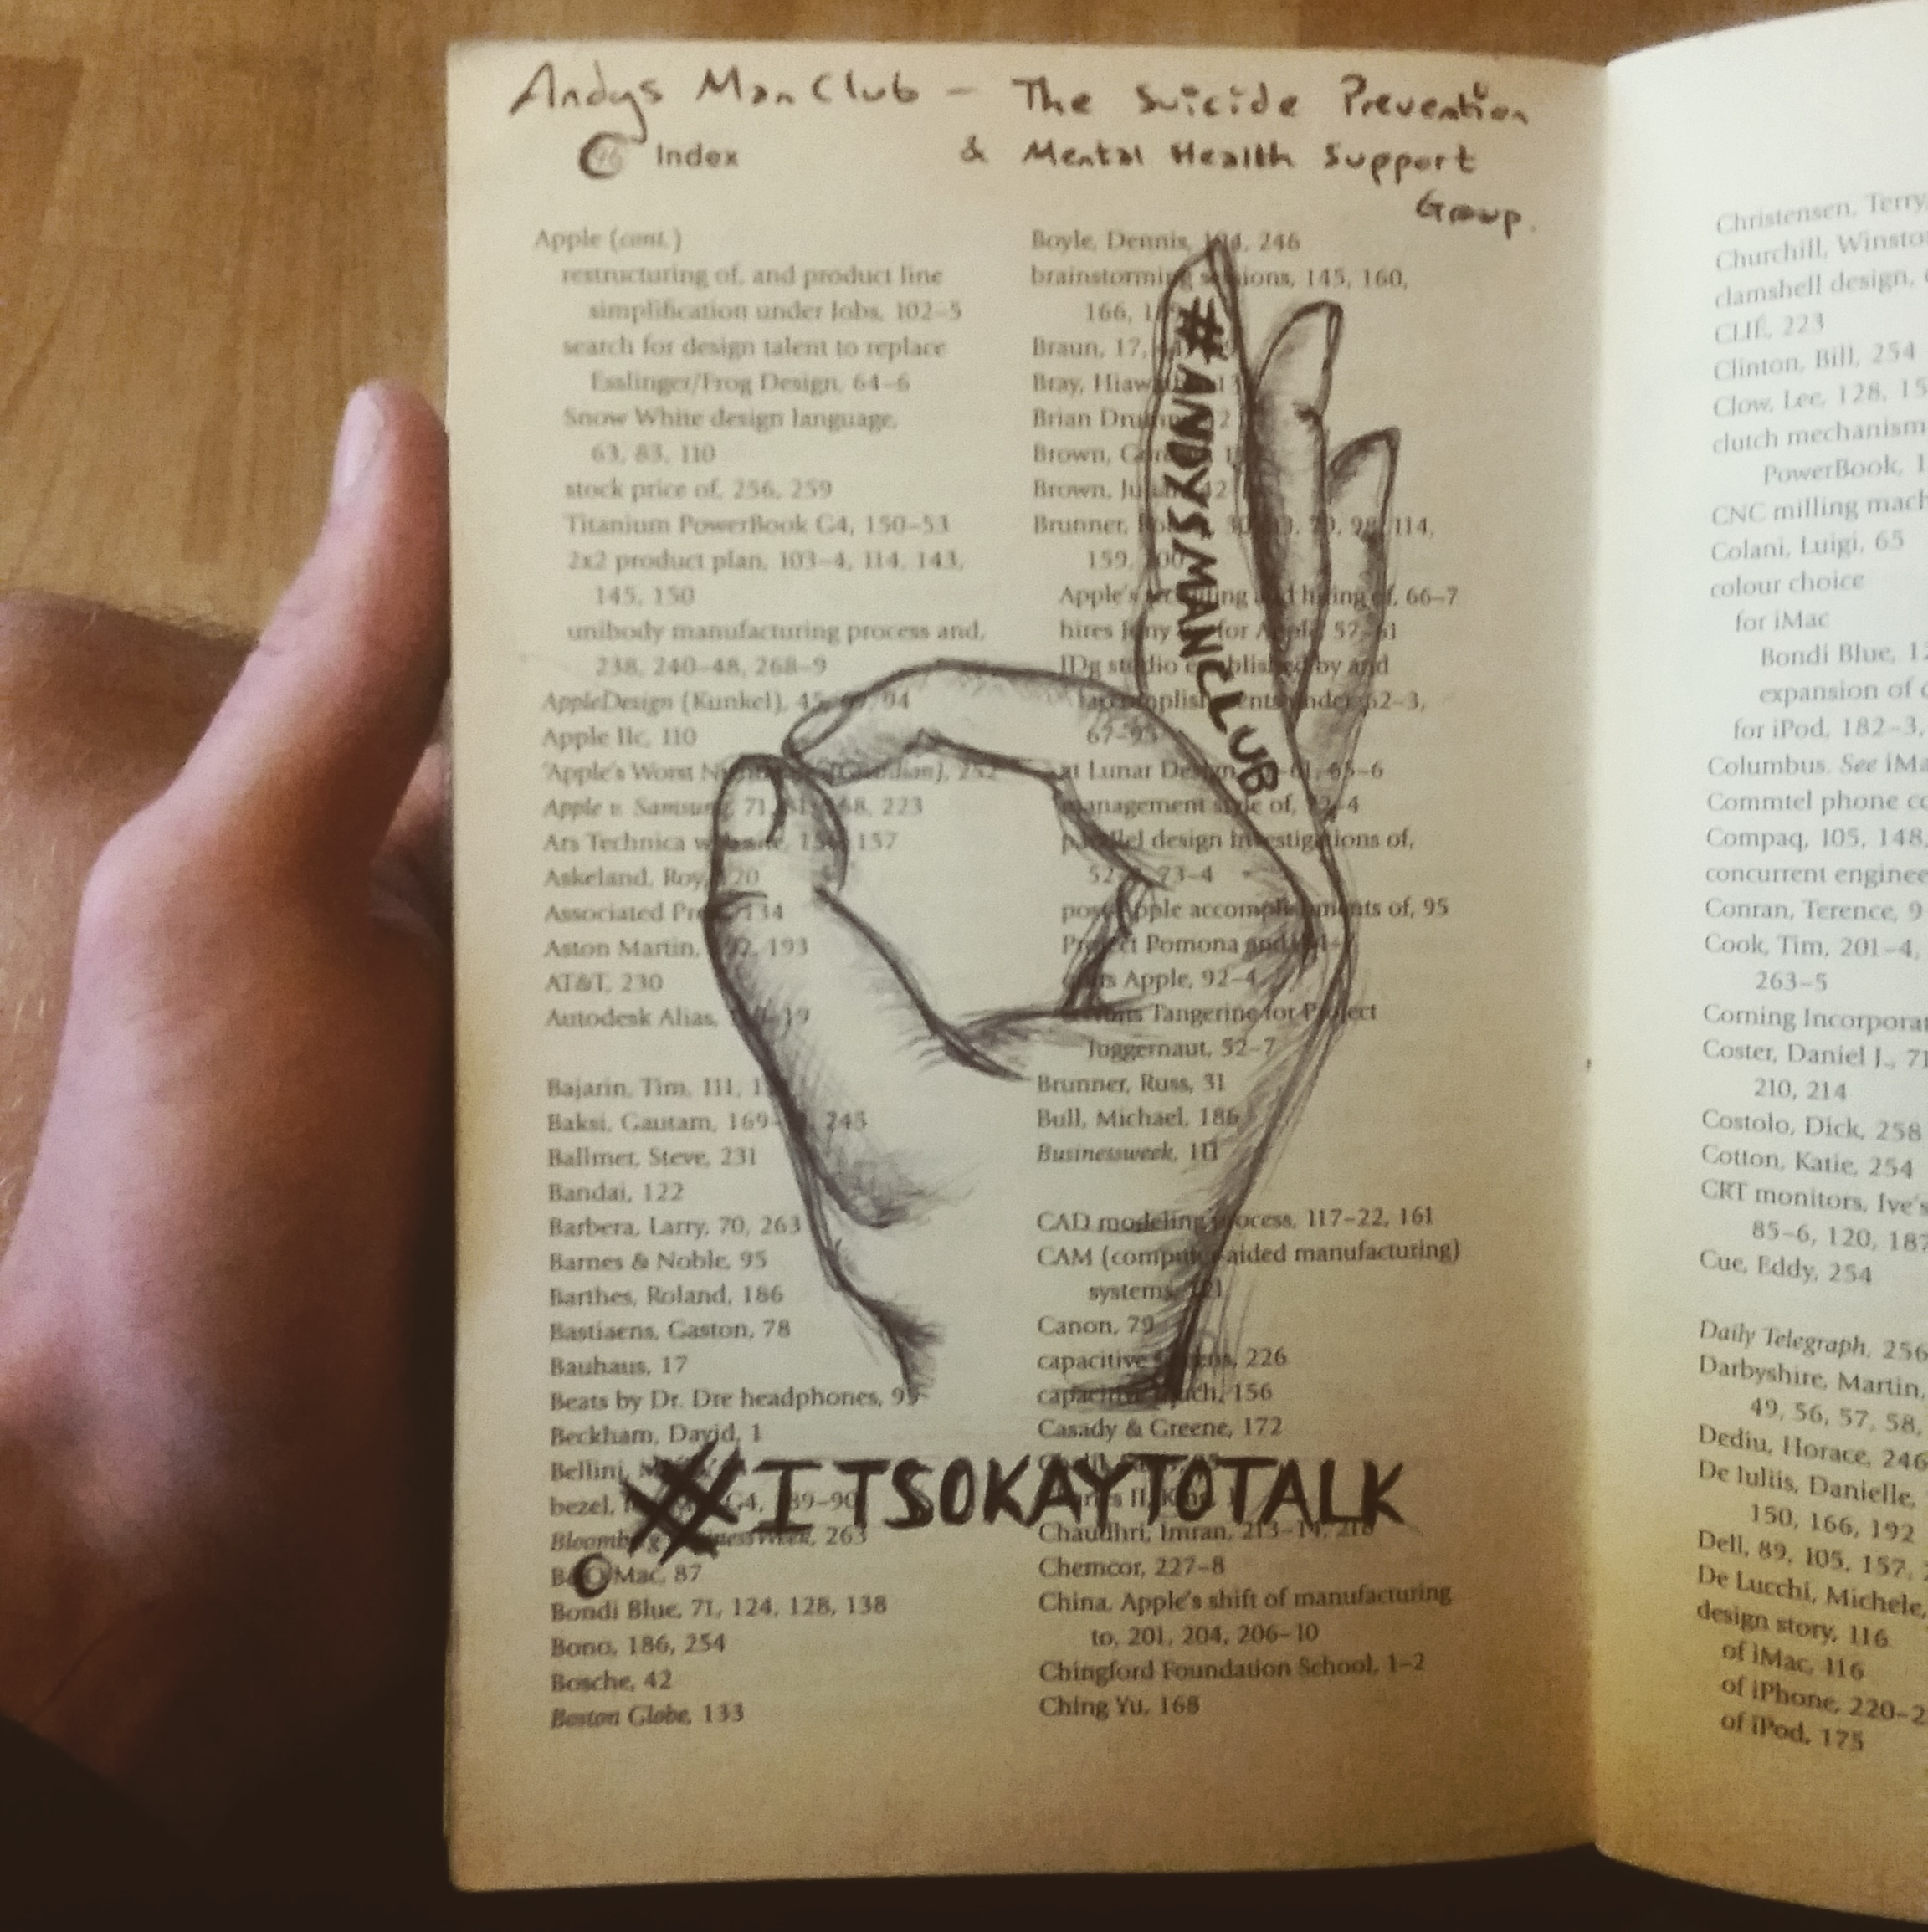 Andys Man Club - The Suicide Prevention
& Mental Health Support
Group.
Index
Apple (cont.)
restructuring of, and product line
simplification under Jobs, 102-5
search for design talent to replace
Esslinger/Frog Design, 64-6
Snow White design language,
63, 83, 110
stock price of, 256, 259
Titanium PowerBook G4, 150-53
2x2 product plan, 103-4, 114, 143,
145, 150
unibody manufacturing process and,
238, 240-48, 268-9
AppleDesign (Kunkel), 94
Apple IIc, 110
'Apple's Worst 252
Apple v. Samsung, 71, 223
Ars Technica 157
Askeland, Roy,
Associated 134
Aston Martin, 193
AT&T, 230
Autodesk Alias,
Bajarin, Tim, 111,
Baksi, Gautam, 245
Ballmer, Steve, 231
Bandai, 122
Barbera, Larry, 70, 263
Barnes & Noble, 95
Barthes, Roland, 186
Bastiaens, Gaston, 78
Bauhaus, 17
Beats by Dr. Dre headphones, 99
Beckham, David, 1
Bellini,
bezel, G4,
Bloomberg 263
Mac, 87
Bondi Blue, 71, 124, 128, 138
Bono, 186, 254
Bosche, 42
Boston Globe, 133
Boyle, Dennis, 246
brainstorming sessions, 145, 160,
166,
Braun, 17,
Bray,
Brian
Brown,
Brown,
Brunner, 98, 114,
159,
Apple's hiring of, 66-7
hires for Apple, 57-61
IDg studio established by and
accomplishments under, 62-3,
67-95
at Lunar 65-6
management style of,
parallel design investigations of,
73-4
post-Apple accomplishments of, 95
Project Pomona and
Apple, 92-4
Tangerine for Project
Juggernaut, 52-7
Brunner, Russ, 31
Bull, Michael, 186
Businessweek, 111
CAD modeling process, 117-22, 161
CAM (computer-aided manufacturing)
systems,
Canon, 79
capacitive 226
capacitive touch, 156
Casady & Greene, 172
Chaudhri, Imran,
Chemcor, 227-8
China, Apple's shift of manufacturing
to, 201, 204, 206-10
Chingford Foundation School, 1-2
Ching Yu, 168
#ANDYSMANCLUB
#ITSOKAYTOTALK
Christensen, Terry,
Churchill,
clamshell design,
CLIÉ, 223
Clinton, Bill, 254
Clow, Lee, 128,
clutch mechanism
PowerBook,
CNC milling
Colani, Luigi, 65
colour choice
for iMac
Bondi Blue,
expansion of
for iPod, 182-3,
Columbus. See
Commtel phone
Compaq, 105, 148,
concurrent
Conran, Terence, 9
Cook, Tim, 201-4,
263-5
Corning
Coster, Daniel J.,
210, 214
Costolo, Dick, 258
Cotton, Katie, 254
CRT monitors, Ive's
85-6, 120,
Cue, Eddy, 254
Daily Telegraph, 256
Darbyshire, Martin,
49, 56, 57, 58,
Dediu, Horace, 246
De Iuliis, Danielle,
150, 166, 192
Dell, 89, 105, 157,
De Lucchi, Michele,
design story, 116
of iMac, 116
of iPhone,
of iPod, 175